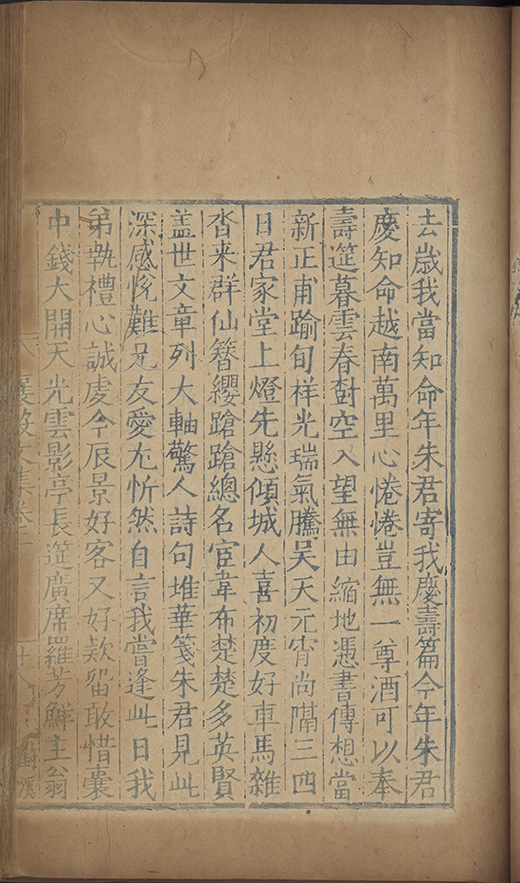 去歲我當知命年朱君寄我慶壽篇今年朱君
慶知命越南萬里心惓惓豈無一尊酒可以奉
壽筵暮雲春樹空入望無由縮地憑書傳想當
新正甫踰旬祥光瑞氣騰吳天元宵尚隔三四
日君家堂上燈先懸傾城人喜初度好車馬雜
沓来群仙簪纓蹌蹌總名宦韋布楚楚多英賢
盖世文章列大軸驚人詩句堆華箋朱君見此
深感悅難兄友愛尤忻然自言我嘗逢此日我
弟執禮心誠虔今辰景好客又好欵留敢惜囊
中錢大開天光雲影亭長筵廣席羅芳鮮主翁
文集卷二